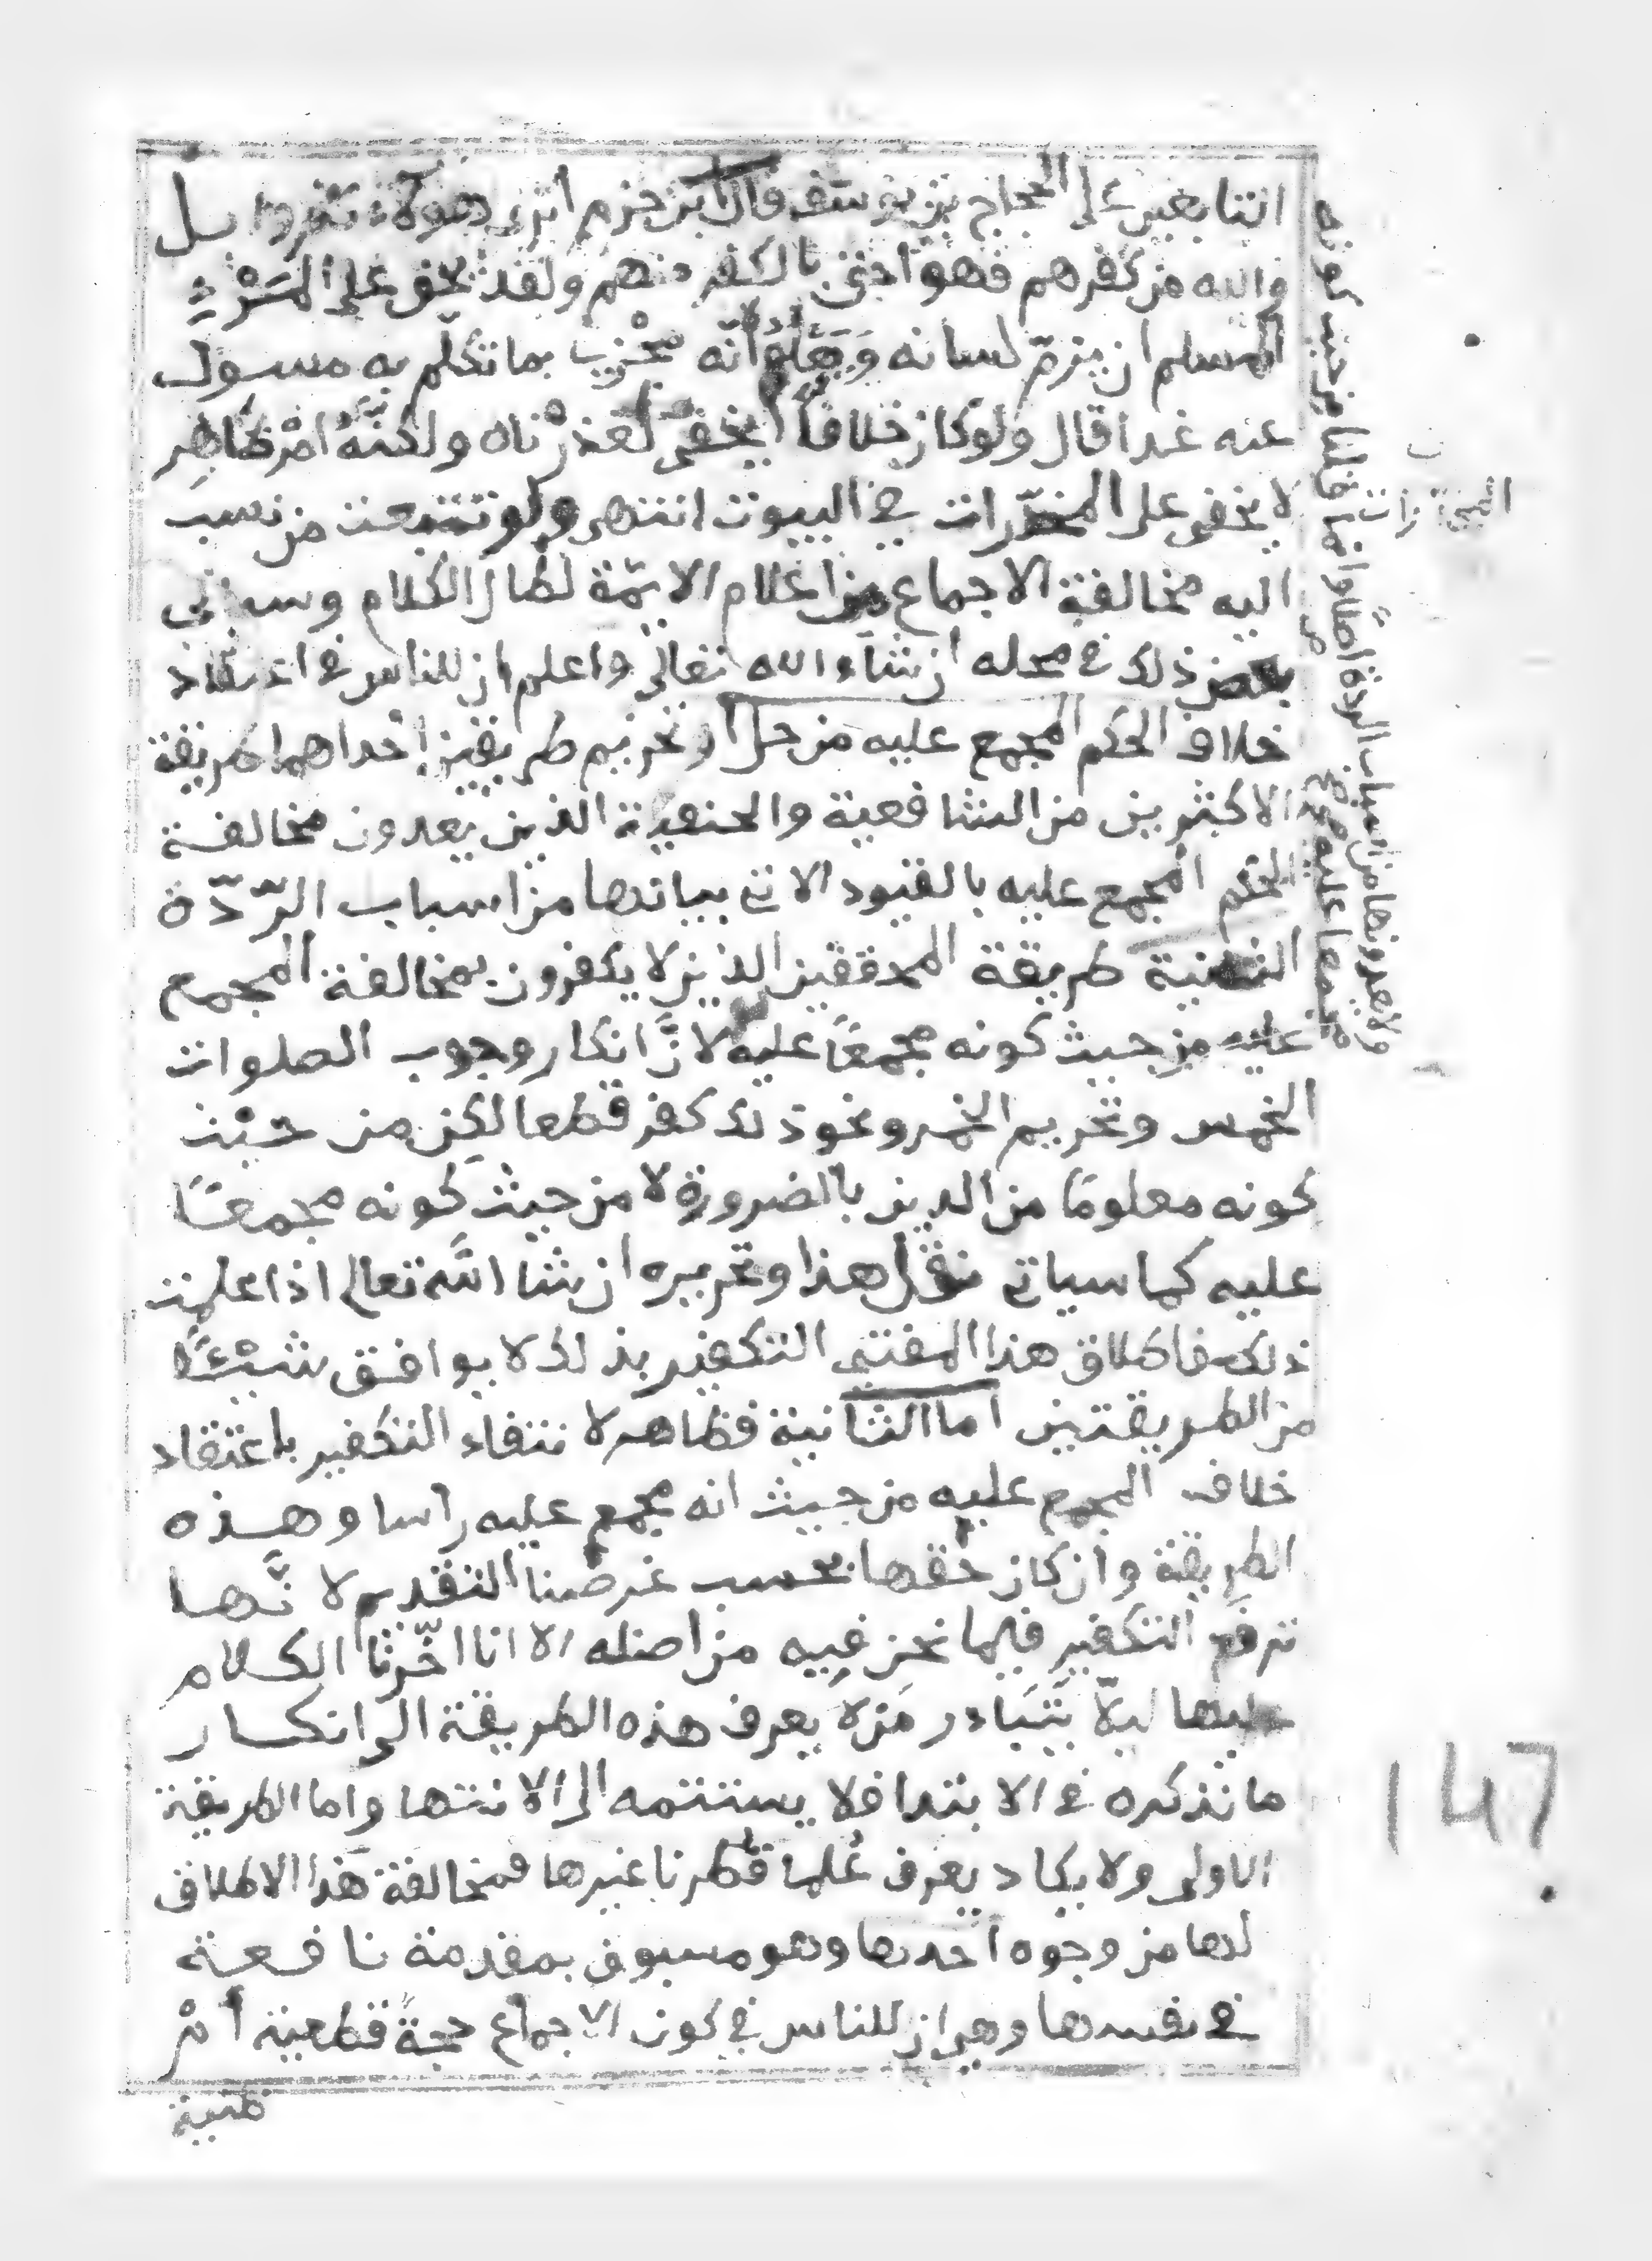 التابعين على الحجاج بن يوسف قال ابن حزم اترى هؤلاء كفروا بل
والله من كفرهم فهو احق بالكفر منهم ولقد يحق على المرء
المسلم ان يزمّ لسانه وَيعلم أنّه مجْزيّ بما تكلّم به مسول
عنه غدا قال ولو كان خلافاً يخفى لعَذرْناه ولكنَّهُ امْر ظاهِر
لا يخفى على المخدّرات في البيوت انتهى ولو تتبعت من نسب
اليه مخالفة الاجماع من اعلام الايمّة لطال الكلام وسياتي
بعض ذلك في محله ان شآء الله تعالى واعلم ان للناس في اعتقاد
خلاف الحكم المجمع عليه من حل او تحريم طريقين إحداهما طريقة
الاكثرين من الشافعية والحنفية الذين يعدون مخالفة
الحكم المجمع عليه بالقيود الاتي بيانها من اسباب الرّدّة
الثانية طريقة المحققين الذين لا يكفرون بمخالفة المجمع
عليه من حيث كونه مجمعًا عليه لانَّ انكار وجوب الصلوات
الخمس وتحريم الخمر ونحو ذلك كفر قطعا لكن من حيْث
كونه معلومًا من الدين بالضرورة لا من حيث كونه مجمعًا
عليه كما سياتي نقل هذا وتحريره ان شا الله تعالى اذا علمت
ذلك فاطلاق هذا المفتي التكفير بذلك لا يوافق شيْئًا
من الطريقتين اما الثانية فظاهر لا نتفاء التكفير باعتقاد
خلاف المجمع عليه من حيث انه مجمع عليه راسا وهذه
الطريقة وان كان حقها بحسب غرضنا التقديم لا نَّها
ترفع التكفير فيما نحن فيه من اصله الا انا اخّرنا الكلام
عليها ليلّا يتَبَادر مَن لا يعرف هذه الطريقة الى انكار
ما نذكره في الابتدا فلا يستتمه الى الانتها واما الطريقة
الاولى ولا يكاد يعرف عُلما قطرنا غيرها فمخالفة هَذا الاطلاق
لها من وجوه احدها وهو مسبوق بمقدمة نافعة
في نفسها وهي ان للناس في كون الاجماع حجةً قطعية أمْ
ظنية
ولا يعدونها من اسباب الردة اصلًا وانما
147